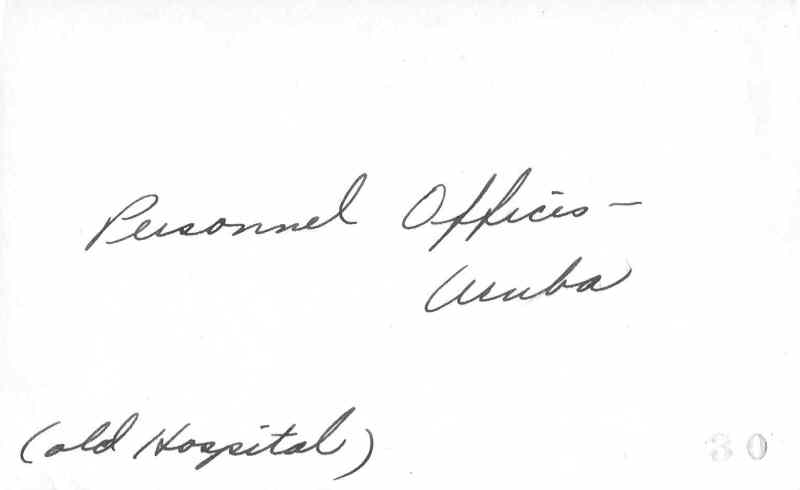 Personnel Offices -
Aruba
(old Hospital)
30